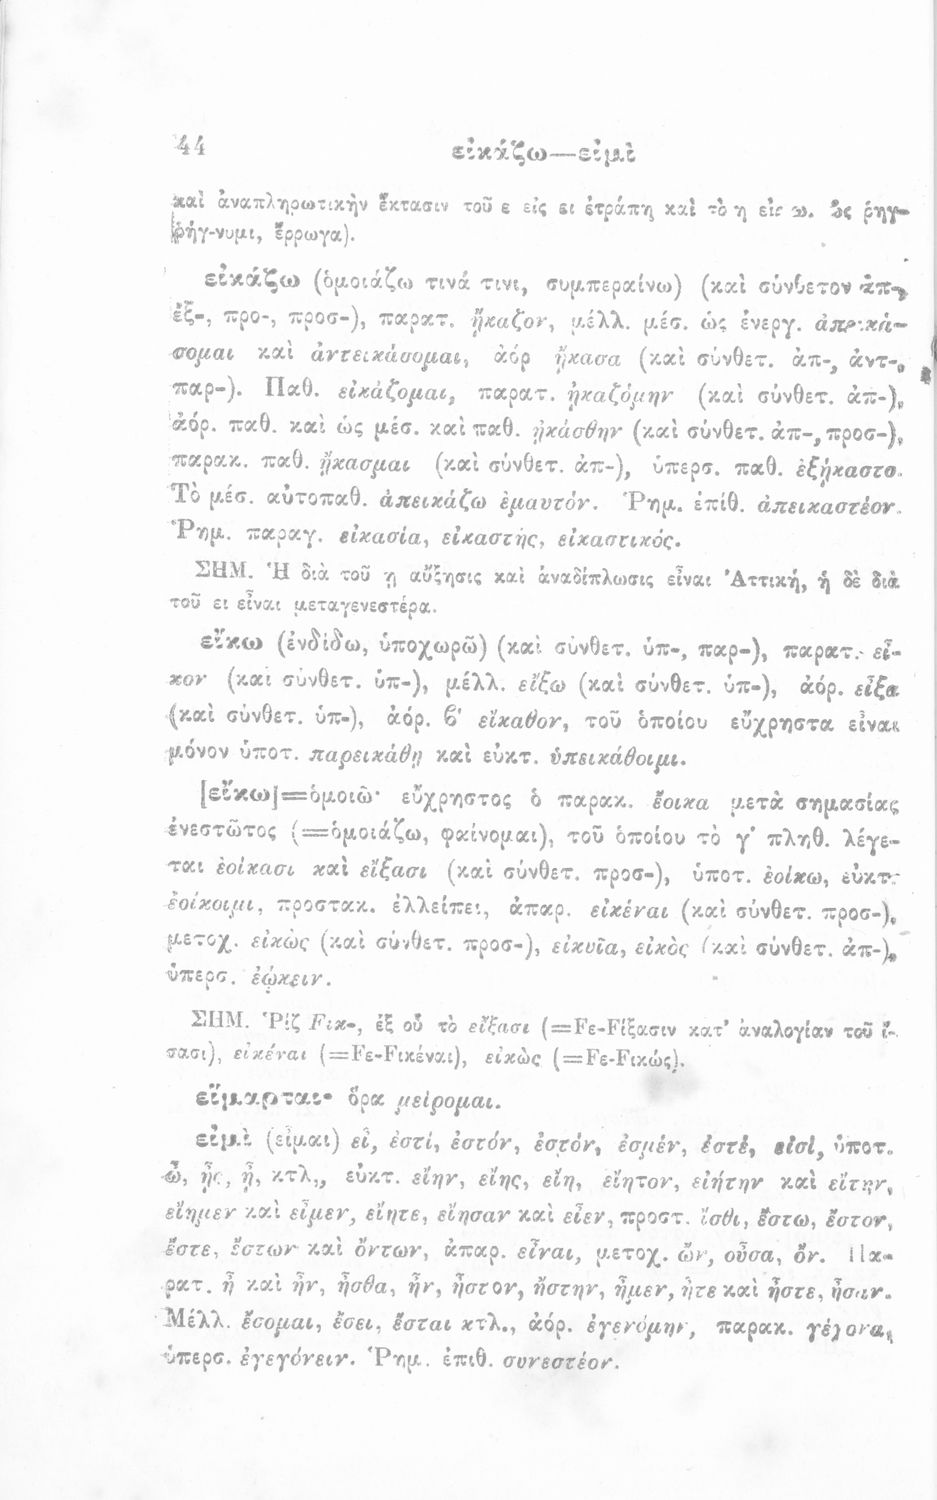 44
εἰκάζω—εἰμὶ
καὶ ἀναπληρωτικὴν ἔκτασιν τοῦ ε εἰς ει ἐτράπη καὶ τὸ η εἰς ω. ὃς ῥηγ-
ῥήγ-νυμι, ἔρρωγα).
εἰκάζω (ὁμοιάζω τινά τινι, συμπεραίνω) (καὶ σύνθετον ἀπ-,
ἐξ-, προ-, προσ-), παρατ. ᾔκαζον, μέλλ. μέσ. ὡς ἐνεργ. ἀπεικά-
σομαι καὶ ἀντεικάσομαι, ἀόρ ᾔκασα (καὶ σύνθετ. ἀπ-, ἀντ-,
παρ-). Παθ. εἰκάζομαι, παρατ. ᾐκαζόμην (καὶ σύνθετ. ἀπ-),
ἀόρ. παθ. καὶ ὡς μέσ. καὶ παθ. ᾐκάσθην (καὶ σύνθετ. ἀπ-, προσ-),
παρακ. παθ. ᾔκασμαι (καὶ σύνθετ. ἀπ-), ὑπερσ. παθ. ἐξῄκαστο.
Τὸ μέσ. αὐτοπαθ. ἀπεικάζω ἐμαυτόν. Ῥημ. ἐπίθ. ἀπεικαστέον.
Ῥημ. παραγ. εἰκασία, εἰκαστής, εἰκαστικός.
ΣΗΜ. Ἡ διὰ τοῦ ῃ αὔξησις καὶ ἀναδίπλωσις εἶναι Ἀττική, ἡ δὲ διὰ
τοῦ ει εἶναι μεταγενεστέρα.
εἴκω (ἐνδίδω, ὑποχωρῶ) (καὶ σύνθετ. ὑπ-, παρ-), παρατ. εἶ-
κον (καὶ σύνθετ. ὑπ-), μέλλ. εἴξω (καὶ σύνθετ. ὑπ-), ἀόρ. εἶξα
(καὶ σύνθετ. ὑπ-), ἀόρ. β′ εἴκαθον, τοῦ ὁποίου εὔχρηστα εἶναι
μόνον ὑποτ. παρεικάθῃ καὶ εὐκτ. ὑπεικάθοιμι.
[εἴκω]=ὁμοιῶ· εὔχρηστος ὁ παρακ. ἔοικα μετὰ σημασίας
ἐνεστῶτος (=ὁμοιάζω, φαίνομαι), τοῦ ὁποίου τὸ γ′ πληθ. λέγε-
ται ἐοίκασι καὶ εἴξασι (καὶ σύνθετ. προσ-), ὑποτ. ἐοίκω, εὐκτ.
ἐοίκοιμι, προστακ. ἐλλείπει, ἀπαρ. εἰκέναι (καὶ σύνθετ. προσ-),
μετοχ. εἰκὼς (καὶ σύνθετ. προσ-), εἰκυῖα, εἰκὸς (καὶ σύνθετ. ἀπ-),
ὑπερσ. ἐῴκειν.
ΣΗΜ. Ῥίζ Fικ-, ἐξ οὗ τὸ εἴξασι (=Fε-Fίξασιν κατ' ἀναλογίαν τοῦ ἴ-
σασι), εἰκέναι (=Fε-Fικέναι), εἰκὼς (=Fε-Fικώς).
εἵμαρται· ὅρα μείρομαι.
εἰμὶ (εἶμαι) εἶ, ἐστί, ἐστόν, ἐστόν, ἐσμέν, ἐστέ, εἰσί, ὑποτ.
ὦ, ᾖς, ᾖ, κτλ., εὐκτ. εἴην, εἴης, εἴη, εἴητον, εἰήτην καὶ εἴτην,
εἴημεν καὶ εἶμεν, εἴητε, εἴησαν καὶ εἶεν, προστ. ἴσθι, ἔστω, ἔστον,
ἔστε, ἔστων καὶ ὄντων, ἀπαρ. εἶναι, μετοχ. ὤν, οὖσα, ὄν. Πα-
ρατ. ἦ καὶ ἦν, ἦσθα, ἦν, ἦστον, ἤστην, ἦμεν, ἦτε καὶ ἦστε, ἦσαν.
Μέλλ. ἔσομαι, ἔσει, ἔσται κτλ., ἀόρ. ἐγενόμην, παρακ. γέγονα,
ὑπερσ. ἐγεγόνειν. Ῥημ. ἐπιθ. συνεστέον.